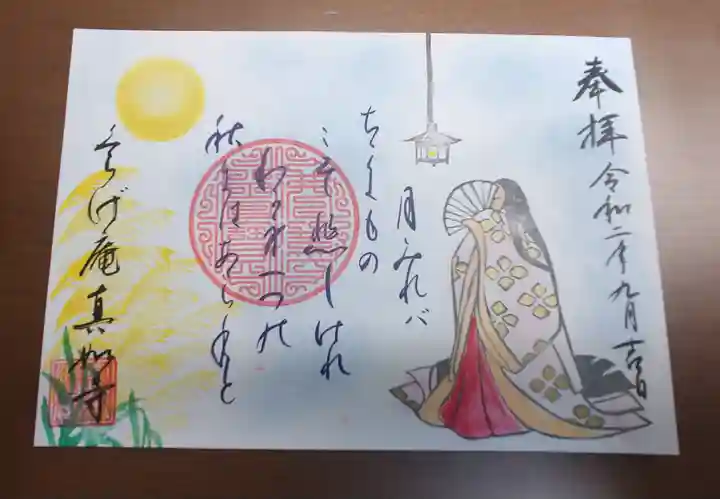 奉拝 令和二年九月吉日
月みれバ
ちゞもの
こそ悲しけれ
わが身一つの
秋にはあらねど
げ庵 真如寺